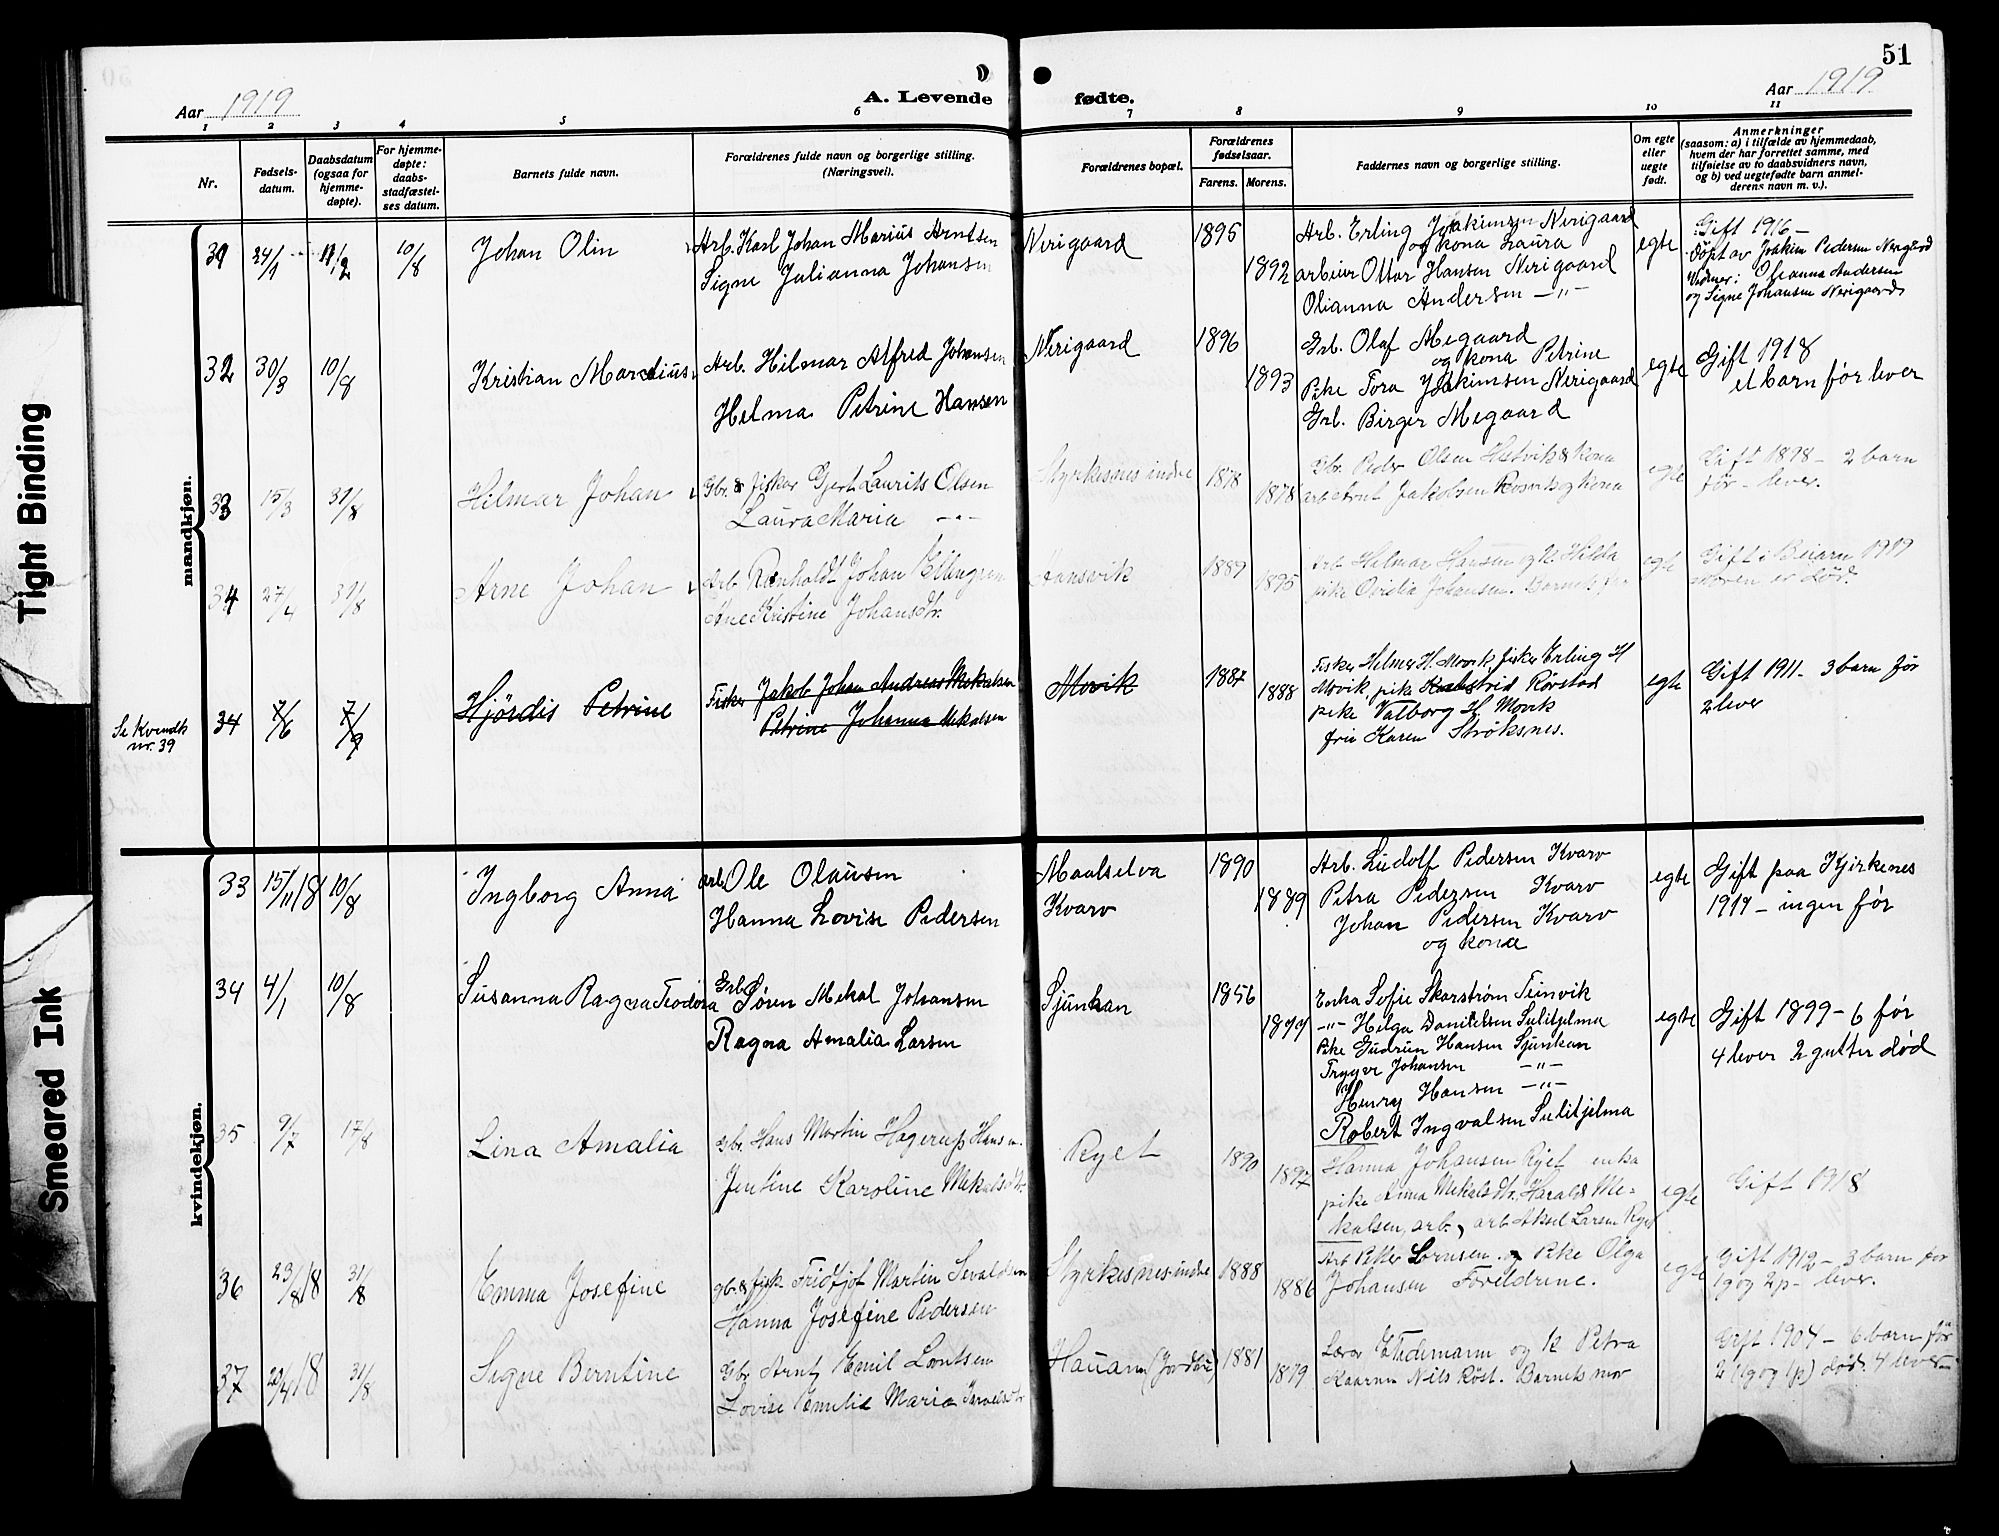 51
Aar 1919
A. Levende
fødte.
Aar 1919
1 2 3 4 5 6 7 8 9 10 11
Nr.
Fødsels-
datum.
Daabsdatum
(ogsaa for
hjemme-
døpte).
For hjemme-
døpte:
daabs-
stadfæstel-
ses datum.
Barnets fulde navn.
Forældrenes fulde navn og borgerlige stilling.
(Næringsvei).
Forældrenes bopæl.
Forældrenes
fødselsaar.
Farens. Morens.
Faddernes navn og borgerlige stilling.
Om egte
eller
uegte
født.
Anmerkninger
(saasom: a) i tilfælde av hjemmedaab,
hvem der har forrettet samme, med
tilføielse av to daabsvidners navn,
og b) ved uegtefødte barn anmel-
derens navn m. v.).
mandkjøn.
31 24/1 11/2 10/8 Johan Olin
Arb. Karl Johan Marius Arntsen
Signe Julianna Johansen
Nerigaard 1895
1892
Arb. Erling Joakimsen Nerigaard
og kona Laura
arbeier Ottar Hansen Nerigaard
Olianna Andersen -"-
egte
Gift 1916 -
Døpt av Joakim Pedersen Nerigård
Vidner: Olianna Andersen
og Signe Johansen Nerigaard
32 30/3 10/8 Kristian Mareлius
Arb. Hilmar Alfred Johansen
Helma Petrine Hansen
Nerigaard 1896
1893
Grb. Olaf Megaard
og kona Petrine
Pike Tora Joakimsen Nerigaard
Grb. Birger Megaard
egte
Gift 1918
et barn før lever
33 15/3 31/8 Hilmar Johan
Gbr. & fisker Gjert Laurits Olsen
Laura Maria -"-
Styrkesnes indre 1878
1878
Gbr. Peder Olsen Hestvik & kona
arb. Arnt Jakobsen Rosvik og kona
egte
Gift 1898 - 2 barn
før - lever.
34 27/4 31/8 Arne Johan
Arb. Reinholdt Johan Ellingsen
Ane Kristine Johansdtr.
Hansvik 1889
1895
Arb. Helmar Hansen og k. Hilda
pike Ovidia Johansen. Barnets far
egte
Gift i Beiarn 1919
moren er død.
Se Kvindk
nr. 39
34 7/6 7/9 Hjørdis Petrine
Fisker Jakob Johan Andreas Mekalsen
Petrine Johanna Mekalsen
Movik 1887
1888
Fisker Helmer H. Movik fisker Erling H
Movik pike Rørstad
pike Valborg H Movik
fru Karen Strøksnes.
egte
Gift 1911 - 3 barn før
2 lever
kvindekjøn.
33 15/11 18 10/8 Ingborg Anna
arb. Ole Olausen
Hanna Lovise Pedersen
Maalselva
Kvarv
1890
1889
Arb. Ludolf Pedersen Kvarv
Petra Pedersen Kvarv
Johan Pedersen Kvarv
og kone
egte
Gift paa Kjirkenes
1919 - ingen før
34 4/1 10/8 Susanna Ragna Teodora
Grb. Søren Mekal Johansen
Ragna Amalia Larsen
Sjunkan 1856
1877
Enka Sofie Skarstrøm Finvik
-"- Helga Danielsen Sulitjelma
Pike Gudrun Hansen Sjunkan
Trygve Johansen -"-
Henry Hansen -"-
Robert Ingvalsen Sulitjelma
egte
Gift 1899 - 6 før
4 lever 2 gutter død
35 9/7 17/8 Lina Amalia
gbr. Hans Martin Hagerup Hansen.
Jentine Karoline Mekalsdtr.
Ryet 1890
1897
Hanna Johansen Ryet enka
pike Anna Mekalsdtr. Harald Me-
kalsen, arb., arb. Aksel Larsen Ryet
egte
Gift 1918
36 23/8 18 31/8 Emma Josefine
gbr. & fisk. Fridtjof Martin Sevaldsen
Hanna Josefine Pedersen
Styrkesnes indre 1888
1886
Arb. Petter Lornsen og Pike Olga
Johansen Foreldrene.
egte
Gift 1912 - 3 barn før
1 g og 2 p - lever.
37 20/4 18 31/8 Signe Berntine
Gbr. Arnt Emil Lorntsen
Lovise Emelie Maria
Hauan (Jordbru) 1881
1879
Lærer E. Tidemann og k Petra
Kaarnes Nils Røst. Barnets mor
Gift 1904 - 6 barn før
2 (1g og 1p) død. 4 lever
Tight Binding
Smeared Ink